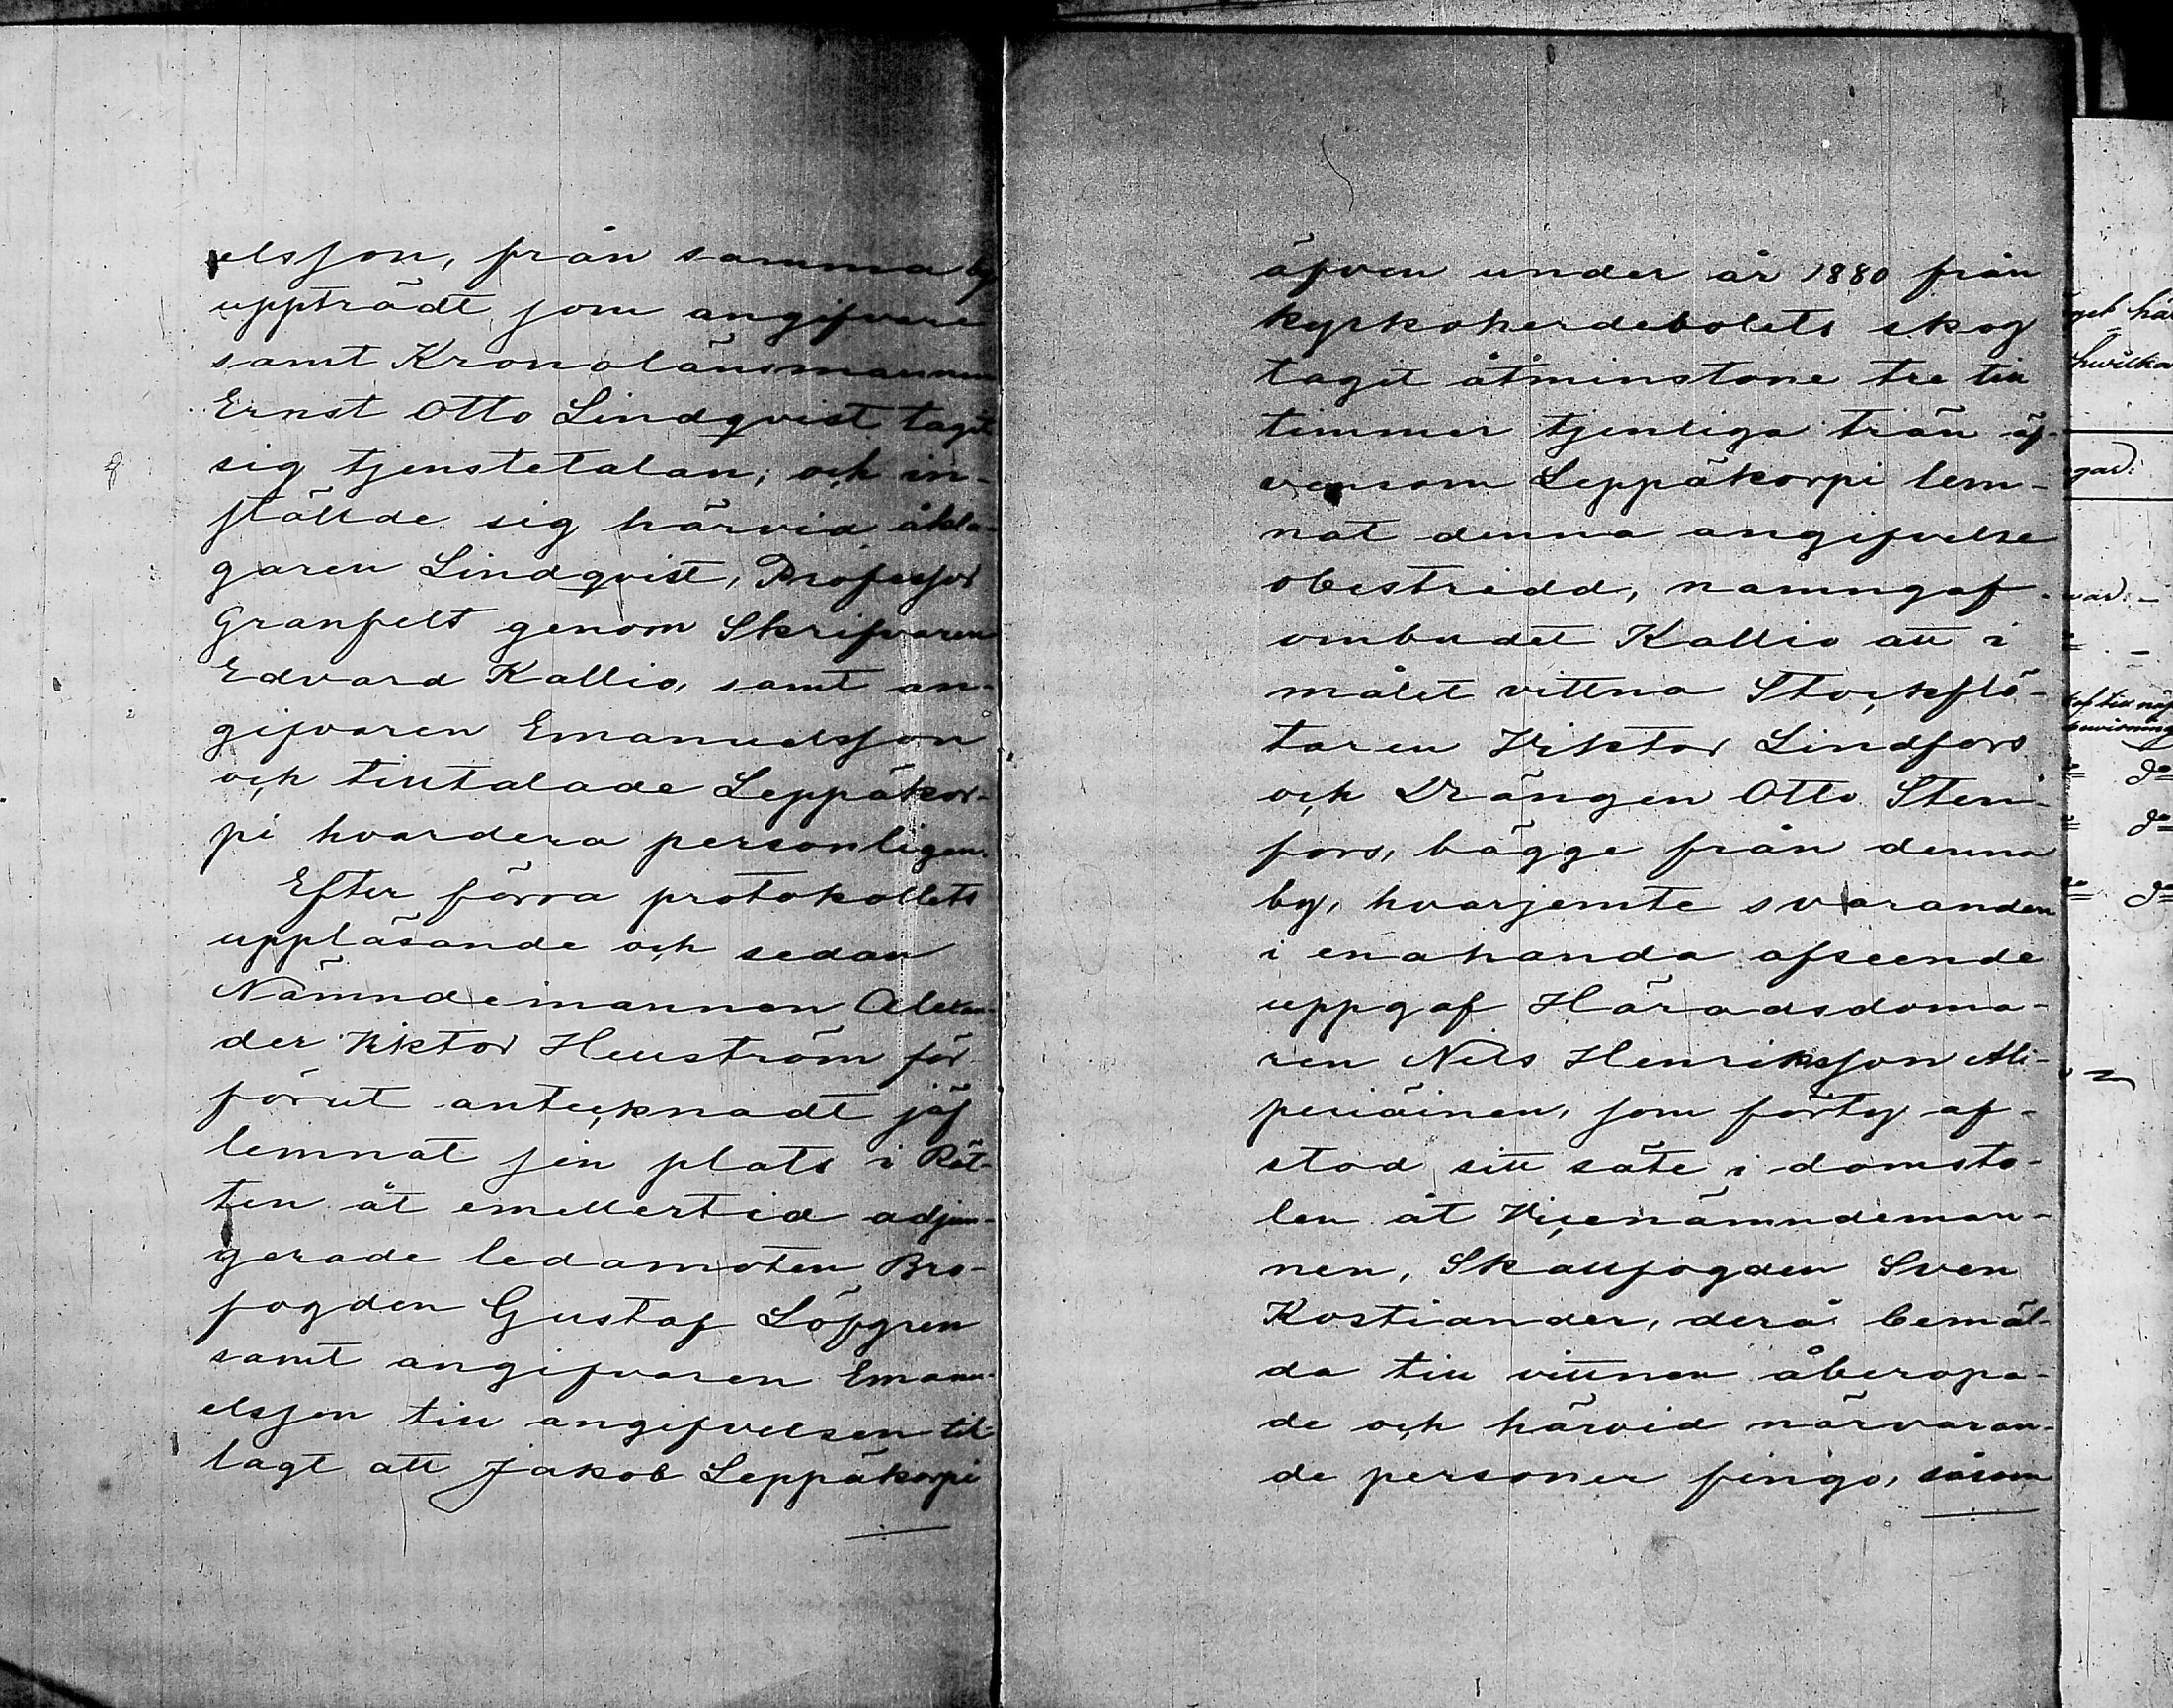 elsson, från samma by
uppträdt som angifvare
samt Kronolänsmannen
Ernst Otto Lindqvist tagit
sig tjenstetalan; och in-
ställde sig härvid åkla-
garen Lindqvist, Professor
Granfelt genom Skrifvaren
Edvard Kallio, samt an-
gifvaren Emanuelsson
och tilltalade Leppäkor-
pi hvardera personligen.
Efter förra protokollets
uppläsande och sedan
Nämndemannen Alexan-
der Viktor Hellström för
förut antecknadt jäf
lemnat sin plats i Rät-
ten åt emellertid adjun-
gerade ledamoten Bro-
fogden Gustaf Löfgren
samt angifvaren Emanu-
elsson till angifvelsen til-
lagt att Jakob Leppäkorpi
äfven under år 1880 från
kyrkoherdebolets skog
tagit åtminstone tre till
timmer tjenliga trän äf-
vensom Leppäkorpi lem-
nat denna angifvelse
obestridd, namngaf
ombudet Kallio att i
målet vittna Stockflö-
taren Viktor Lindfors
och Drängen Otto Sten-
fors, bägge från denna
by, hvarjemte svaranden
i enahanda afseende
uppgaf Häradsdoma-
ren Nils Henriksson Ali-
penäinen, som förty af-
stod sitt säte i domsto-
len åt Vicenämndeman-
nen, Skallfogden Sven
Kostiander, derå bemäl-
da till vittnen åberopa-
de och härvid närvaran-
de personer fingo, såsom
get hä
hwilka
gad:
ad: -
do
do
do